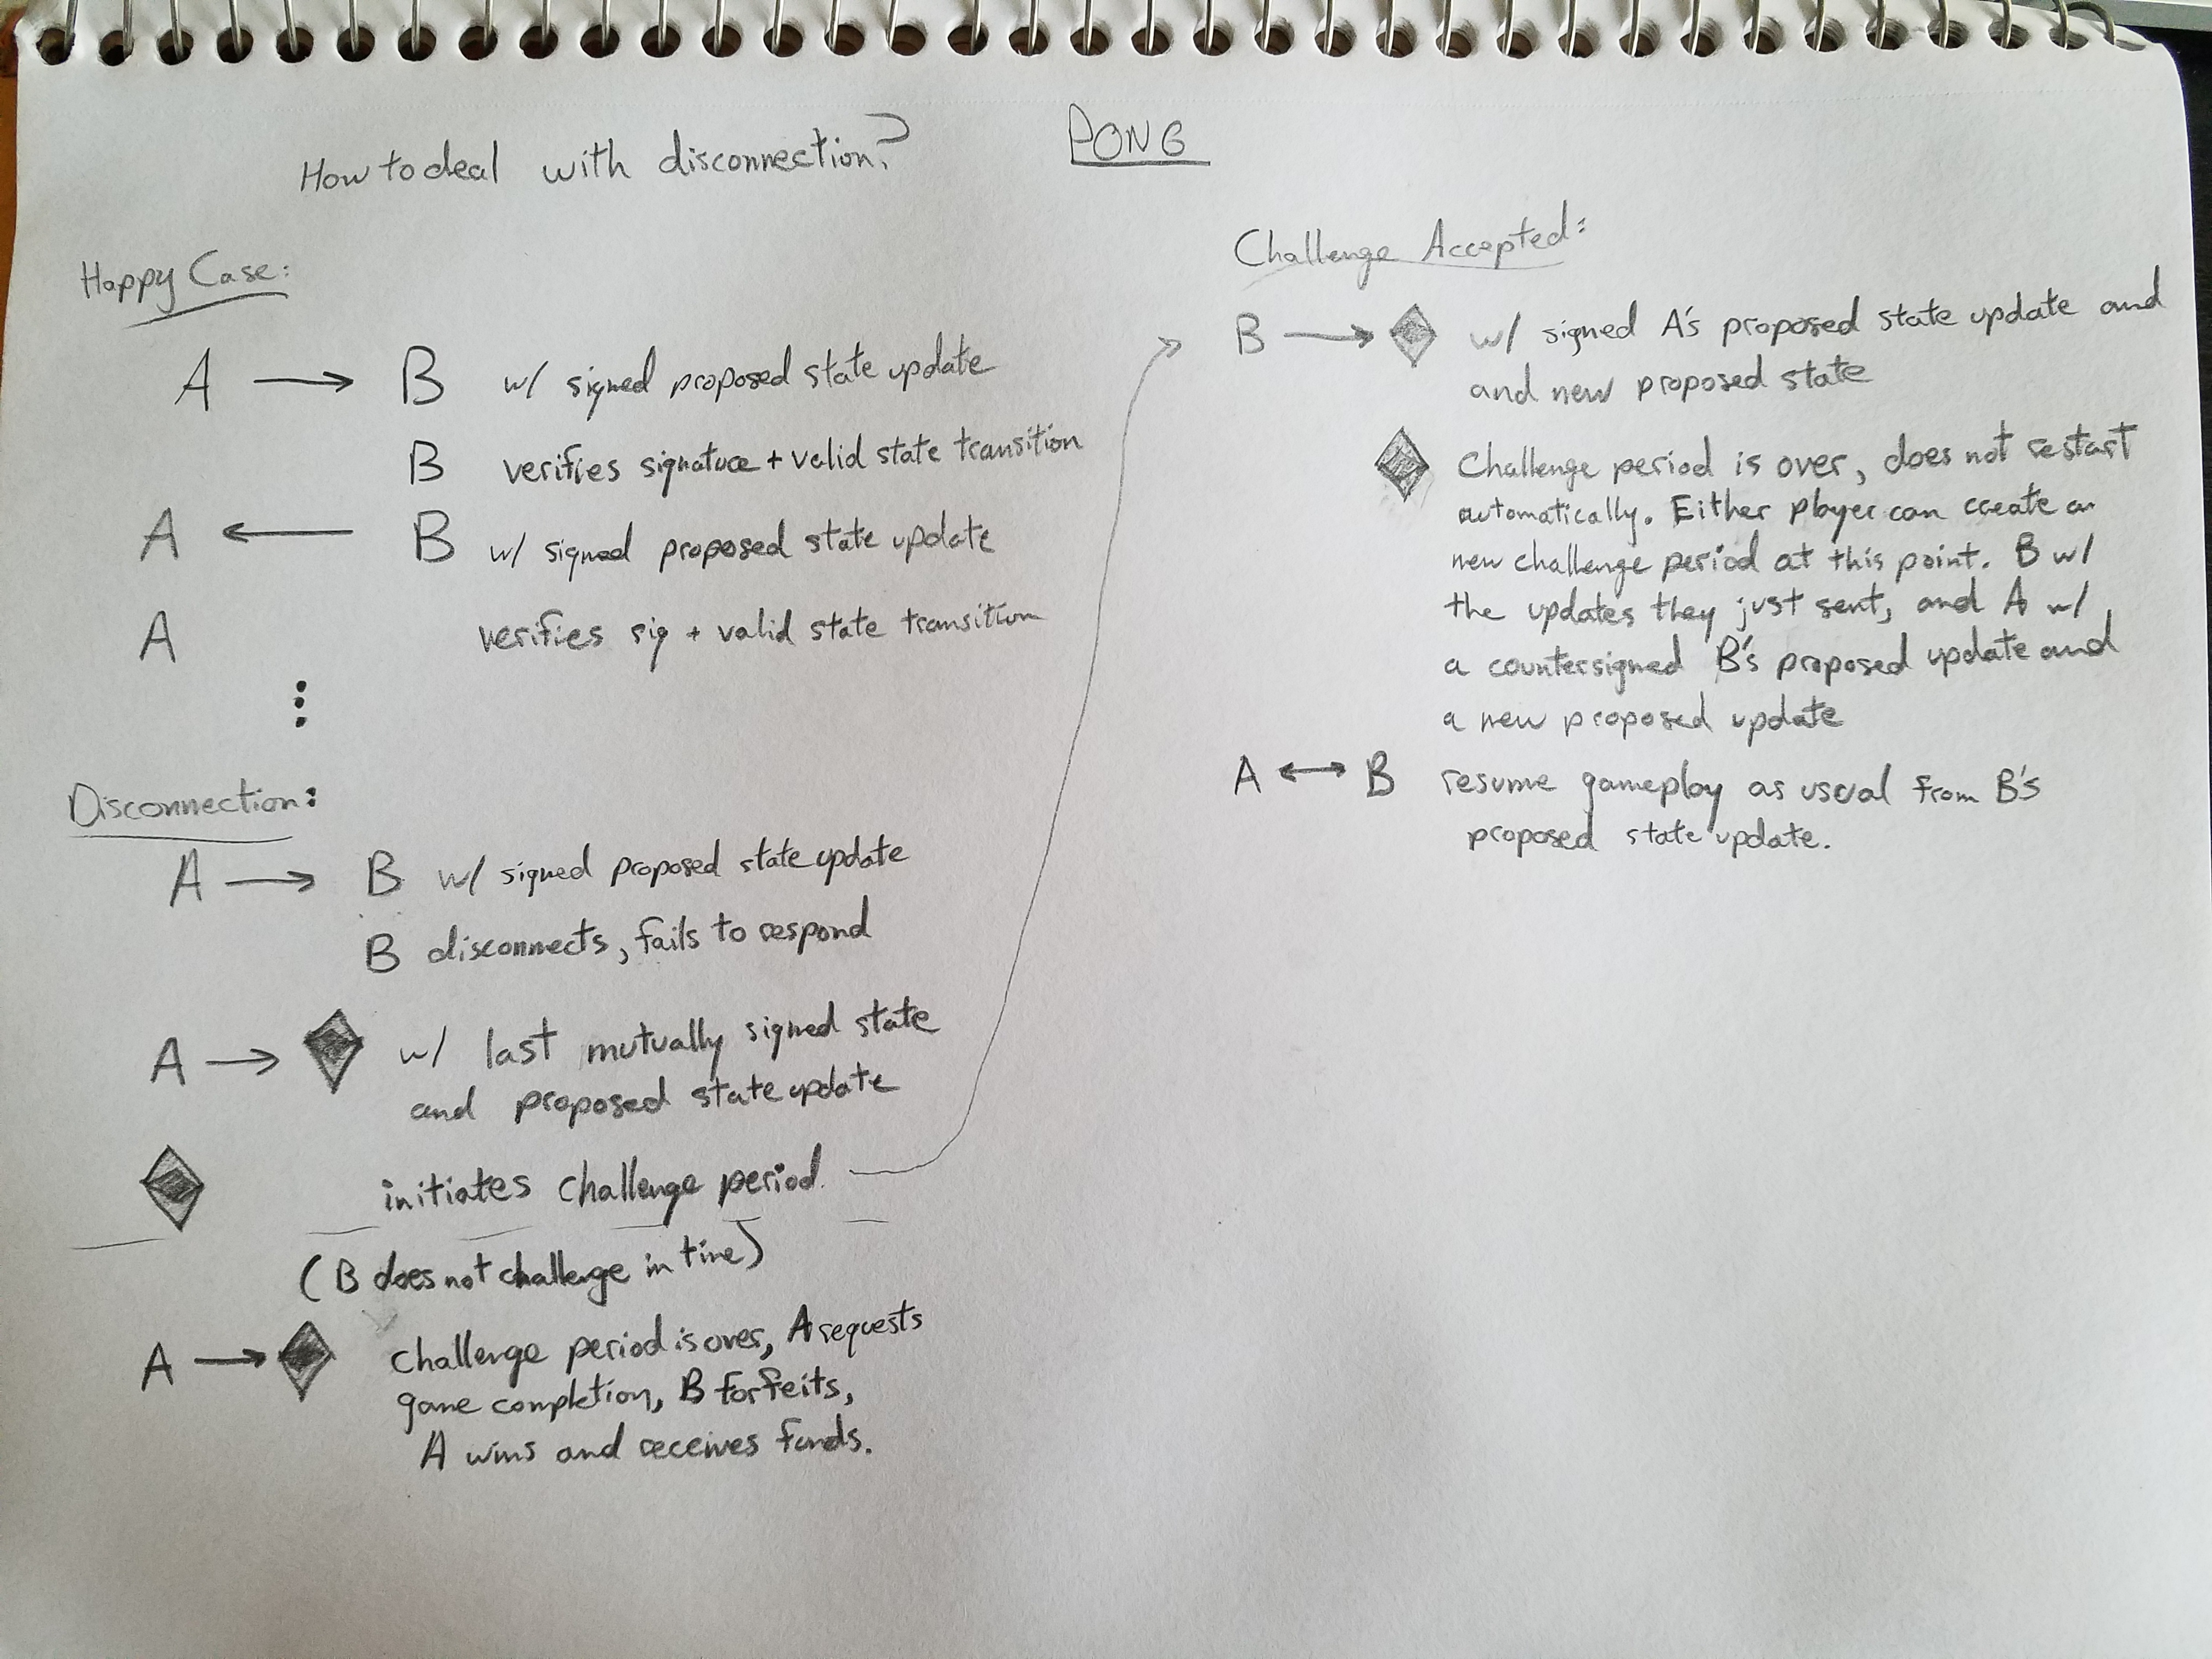 PONG
How to deal with disconnection?
Happy Case:
A → B w/ signed proposed state update
B verifies signature + valid state transition
A ← B w/ signed proposed state update
A verifies sig + valid state transition
⋮
Disconnection:
A → B w/ signed proposed state update
B disconnects, fails to respond
A → w/ last mutually signed state
and proposed state update
initiates challenge period.
(B does not challenge in time)
A → challenge period is over, A requests
game completion, B forfeits,
A wins and receives funds.
Challenge Accepted:
B → w/ signed A's proposed state update and
and new proposed state
Challenge period is over, does not restart
automatically. Either player can create a
new challenge period at this point. B w/
the updates they just sent, and A w/
a countersigned B's proposed update and
a new proposed update
A ↔ B resume gameplay as usual from B's
proposed state update.